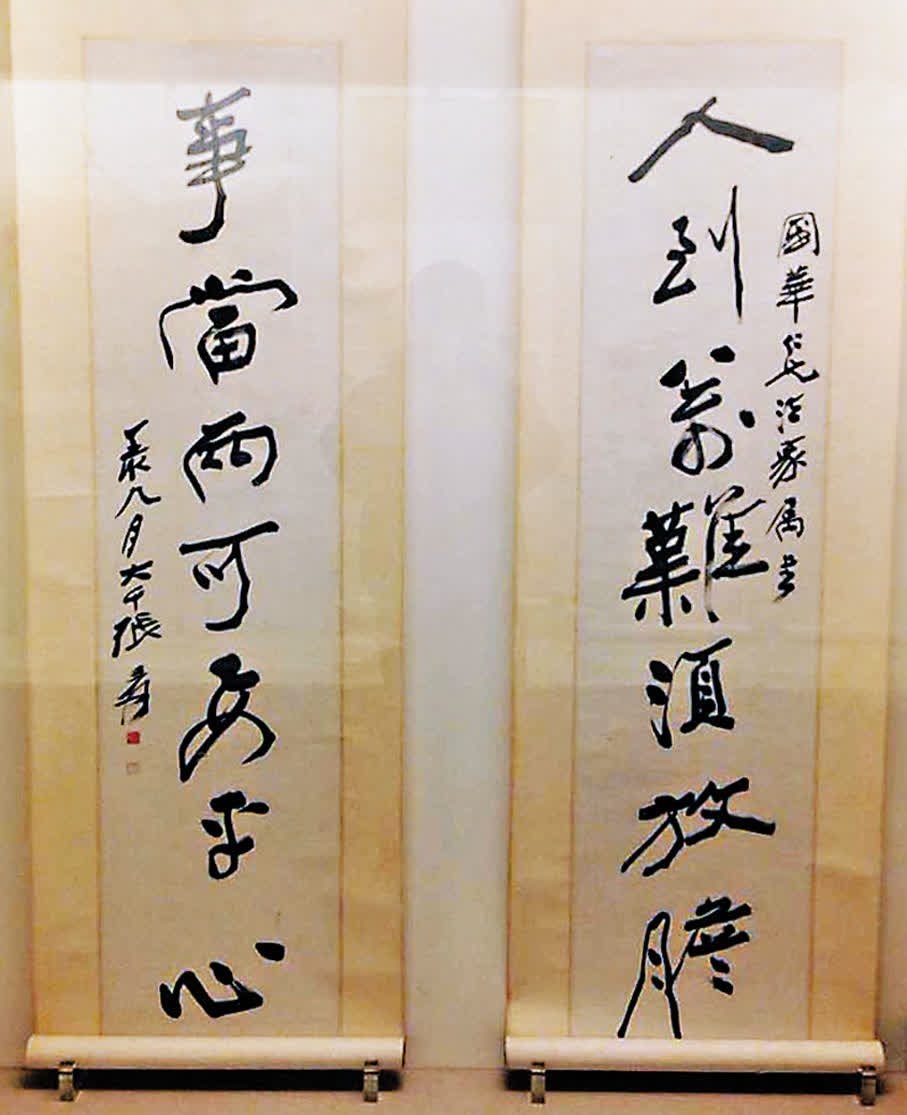 人到萬難須放膽
國華仁兄法家屬書
事當兩可要平心
月大千張爰